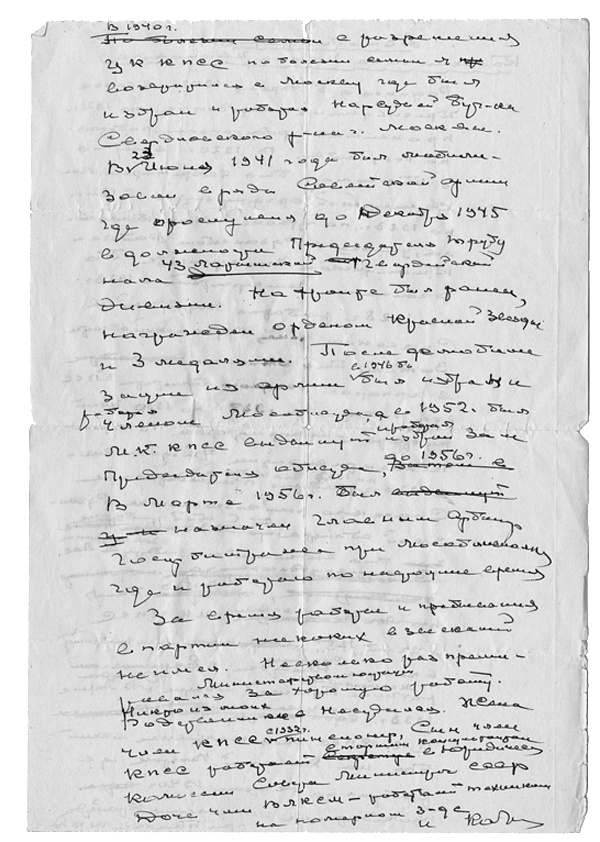 В 1940 г.
По болезни семьи с разрешения
ЦК КПСС по болезни семьи я
возвратился в Москву где был
избран и работал Народным Судьей
Свердловского р-на г. Москвы.
В 23 Июня 1941 года был мобили-
зован в ряды Советской Армии
где прослужил до Декабря 1945
в должности Председателя Трибу
нала 43 Латышской Гвардейской
дивизии. На фронте был ранен,
награжден орденом Красной Звезды
и 3 медалями. После демобили
зации из армии с 1946 г. был избран и
работал
членом Мособлсуда, а с 1952 г. был
МК КПСС выдвинут и избран Зам
Председателя облсуда, до 1956 г. Затем в
В Марте 1956 г. был выдвинут
и назначен Главным Арбитр
Госарбитража при Мособлисполкоме
где и работаю по настоящее время
За время работы и пребывания
в партии никаких взысканий
не имел. Несколько раз преми-
Министерством юстиции
ровался за хорошую работу.
Никто из моих
Родственников не судился. Жена
член КПСС с 1932 г. пенсионер, Сын член
КПСС работает старшим консультантом в Юридической
Комиссии Совета Министров СССР
Дочь член ВЛКСМ – работает техником
на номерном з-де